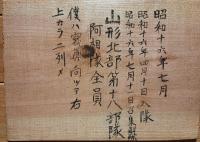 昭和十六年七月
昭和十六年四月十日入隊
昭和十六年七月十一日召集解
山形北部第十八部隊
阿相隊全員
僕ハ写真向ッテ右
上カラ二列メ